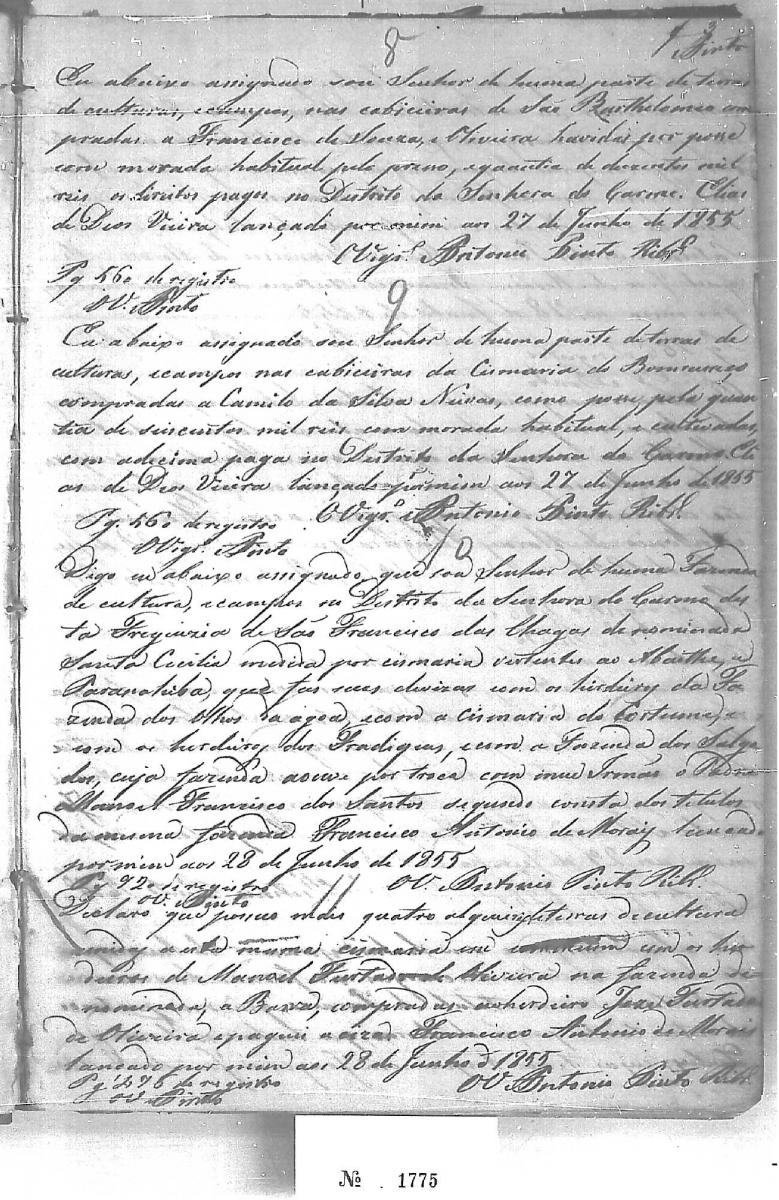 8
3
Pinto
Eu abaixo assignado sou Senhor de huma parte de terras
de culturas, e campos, nas cabiceiras de São Bartholomeo com
pradas a Francisco de Souza, e Oliveira havidas por posse
com morada habitual pelo preso, e quantia de duzentos mil
reis, os direitos pagos no Distrito da Senhora do Carmo. Elias
de Deos Vieira lançado por mim aos 27 de Junho de 1855
O Vigr.º Antonio Pinto Ribr.º
Pg 560 de registro
O V. Pinto
9
Eu abaixo assignado sou Senhor de huma parte de terras de
culturas, e campos nas cabiceiras da Cismaria do Bomsucesso
compradas a Camilo da Silva Nuvas, como posse, pela quan
tia de sincoentos mil reis com morada habitual, e cultivadas,
com a decima paga no Distrito da Senhora do Carmo Eli
as de Deos Vieira lançado por mim aos 27 de Junho de 1855
Pg. 560 de registro O Vigr.º Antonio Pinto Ribr.º
O Vigr.º Pinto
10
Digo eu abaixo assignado, que sou Senhor de huma Fazenda
de cultura, e campos no Distrito da Senhora do Carmo des
ta Freguezia de São Francisco das Chagas denominada
Santa Cecilia medida por cismaria vertentes ao Abaithe, e
Paranahiba, que fas suas divizas com os herdeiros da Fa
zenda dos Olhos da agoa, e com a cismaria do Cortume, e
com os herdeiros dos Fradiques, e com a Fazenda dos Salga
dos, cuja fazenda a ouve por troca com meu Irmão o Padre
Manoel Francisco dos Santos segundo consta dos titulos
da mesma fazenda Francisco Antonio de Morais lançado
por mim aos 28 de Junho de 1855
Pg 920 de registro O V. Antonio Pinto Ribr.º
O V. Pinto
11
Declaro que possuo mais quatro alqueires de terras de cultura
unidas a esta mesma cismaria em commum com os her
deiros de Manoel Furtado de Oliveira na fazenda de
nominada, a Barra, compradas ao herdeiro Joze Furtado
de Oliveira e paguei a ciza. Francisco Antonio de Morais
lançado por mim aos 28 de Junho de 1855
Pg 276 de registro O V. Antonio Pinto Ribr.º
O V. Pinto
№ 1775